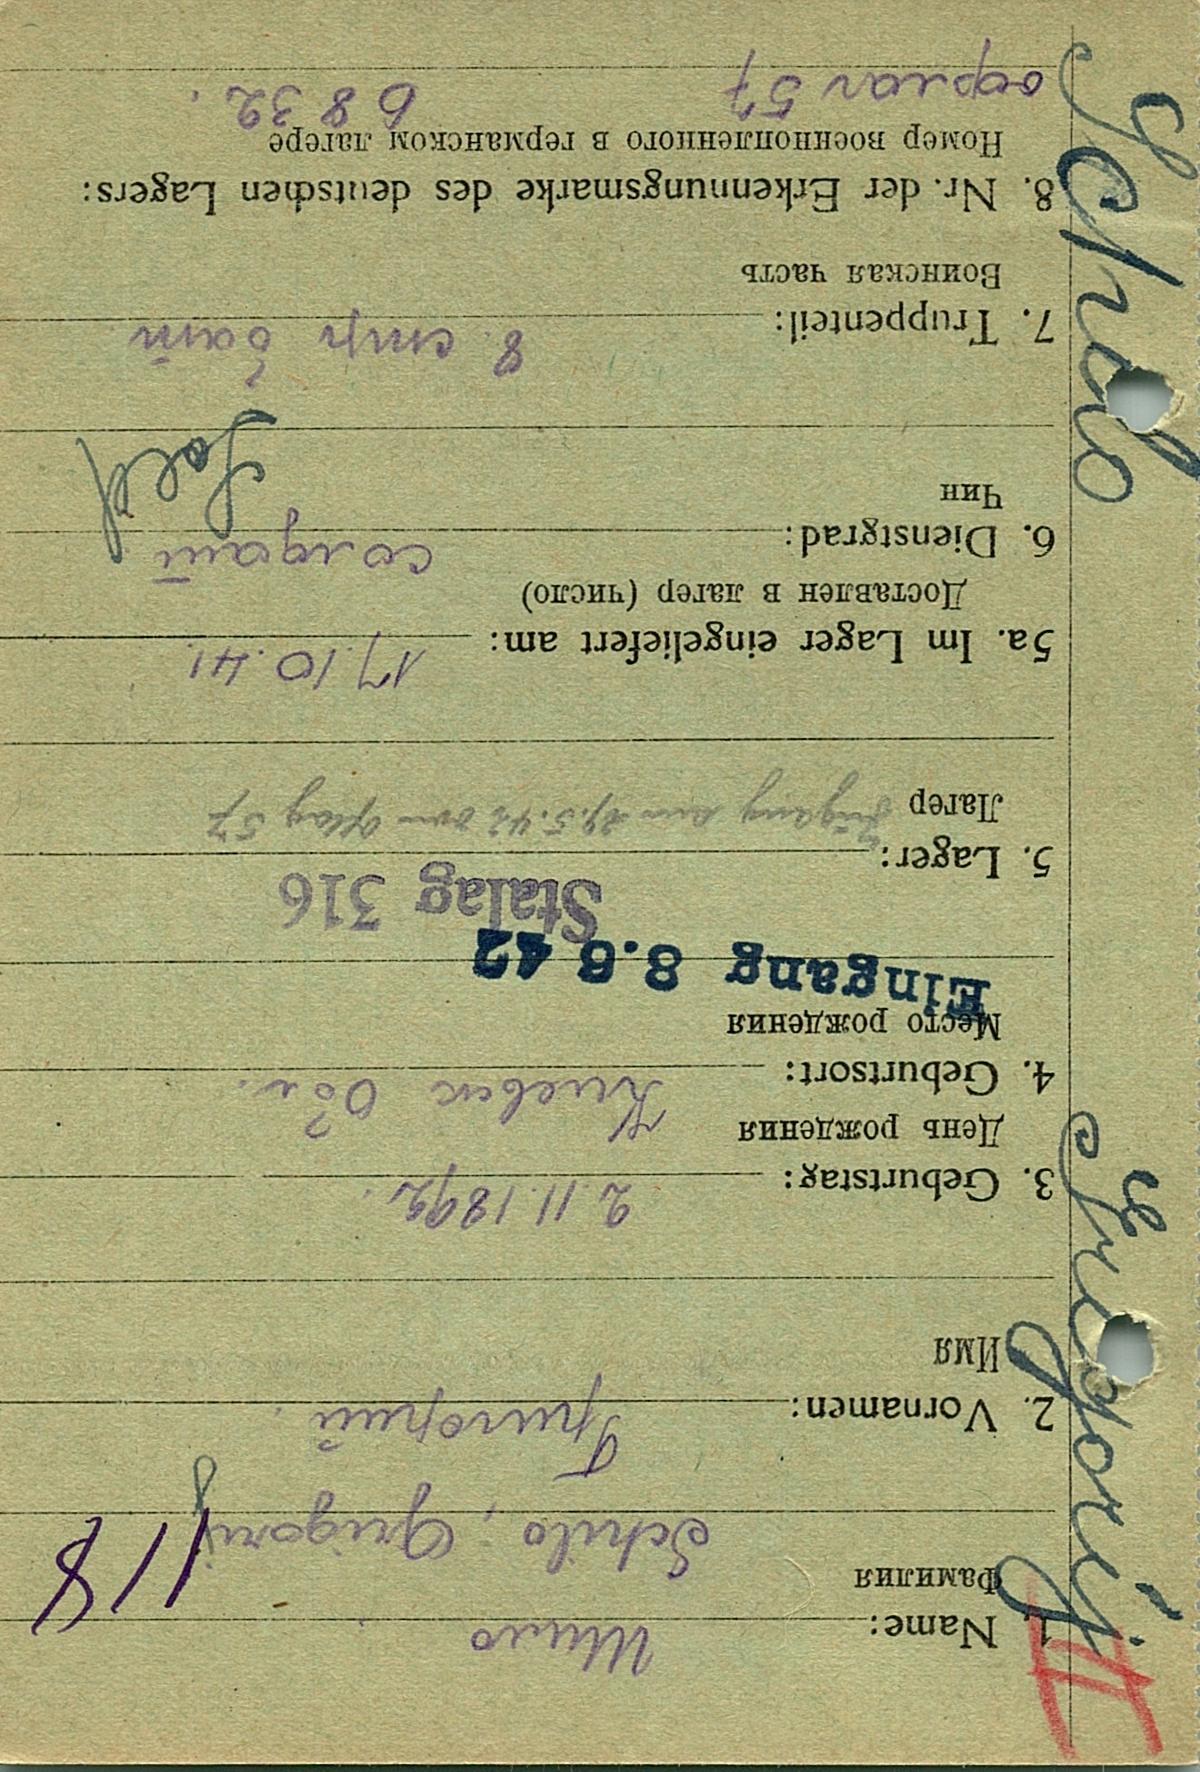 II
118
1. Name: Шило
Фамилия
Schilo, Grigorij
2. Vornamen: Григорий.
Имя
3. Geburtstag: 2.11.1892.
День рождения
4. Geburtsort: Киевск Обл.
Место рождения
Eingang 8.6 42
Stalag 316
5. Lager:
Лагер
Zugang am 29.5.42 vom Oflag 57
5a. Im Lager eingeliefert am: 17.10.41.
Доставлен в лагер (число)
6. Dienstgrad: солдат
Чин
Sold
7. Truppenteil: 8. стр бат
Воинская часть
8. Nr. der Erkennungsmarke des deutschen Lagers:
Номер военнопленного в германском лагере
офлаг 57 6832.
Grigorij
Schilo